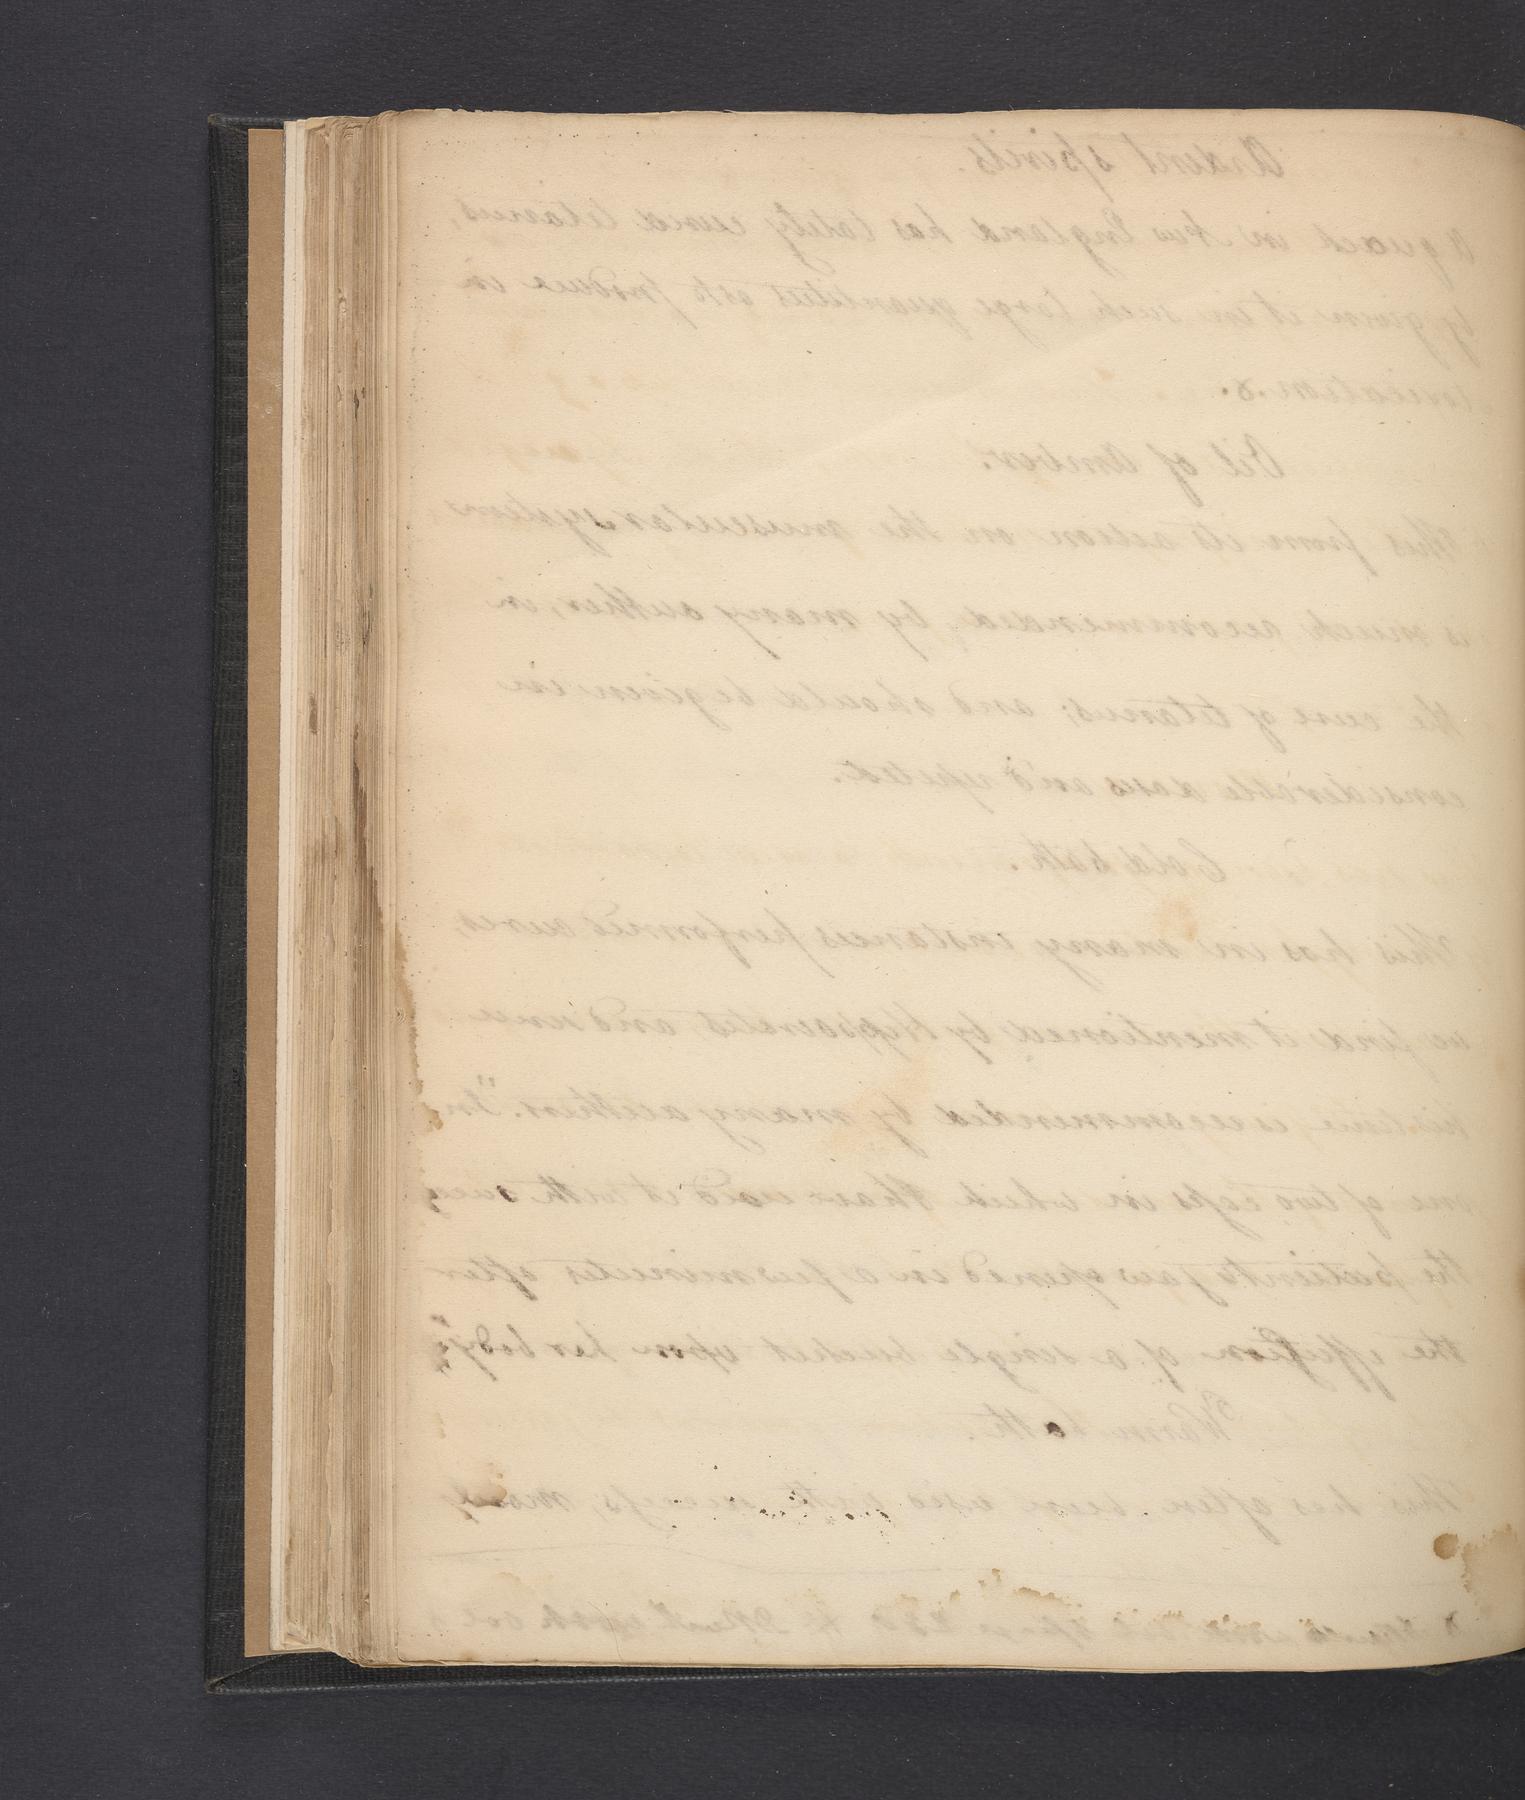 Ardent spirits.
A quack in New England has lately cured tetanus,
by giving it in such large quantities as to produce in
toxication.
Oil of Amber.
This from its action on the muscular system
is much recommended by many auther, in
the cure of tetanus; and should be given in
considerable doses and
Cold bath.
This has in many instances performed cures,
we find it mentioned by Hippocrates, and since
his time, is recommended by many auther. "In
one of two cases in which I have used it with
the patients jaw opened in a few minutes after
the effusion of a single bucket upon her body"
Warm bath.
This has often been used with success,